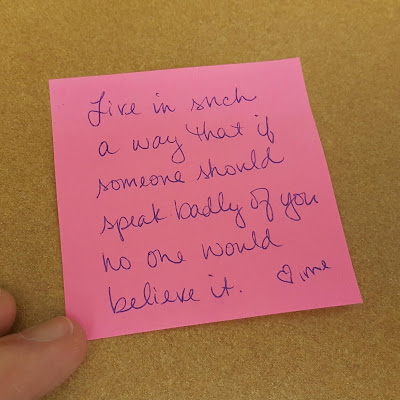 Live in such
a way that if
someone should
speak badly of you
no one would
believe it. ♡, me